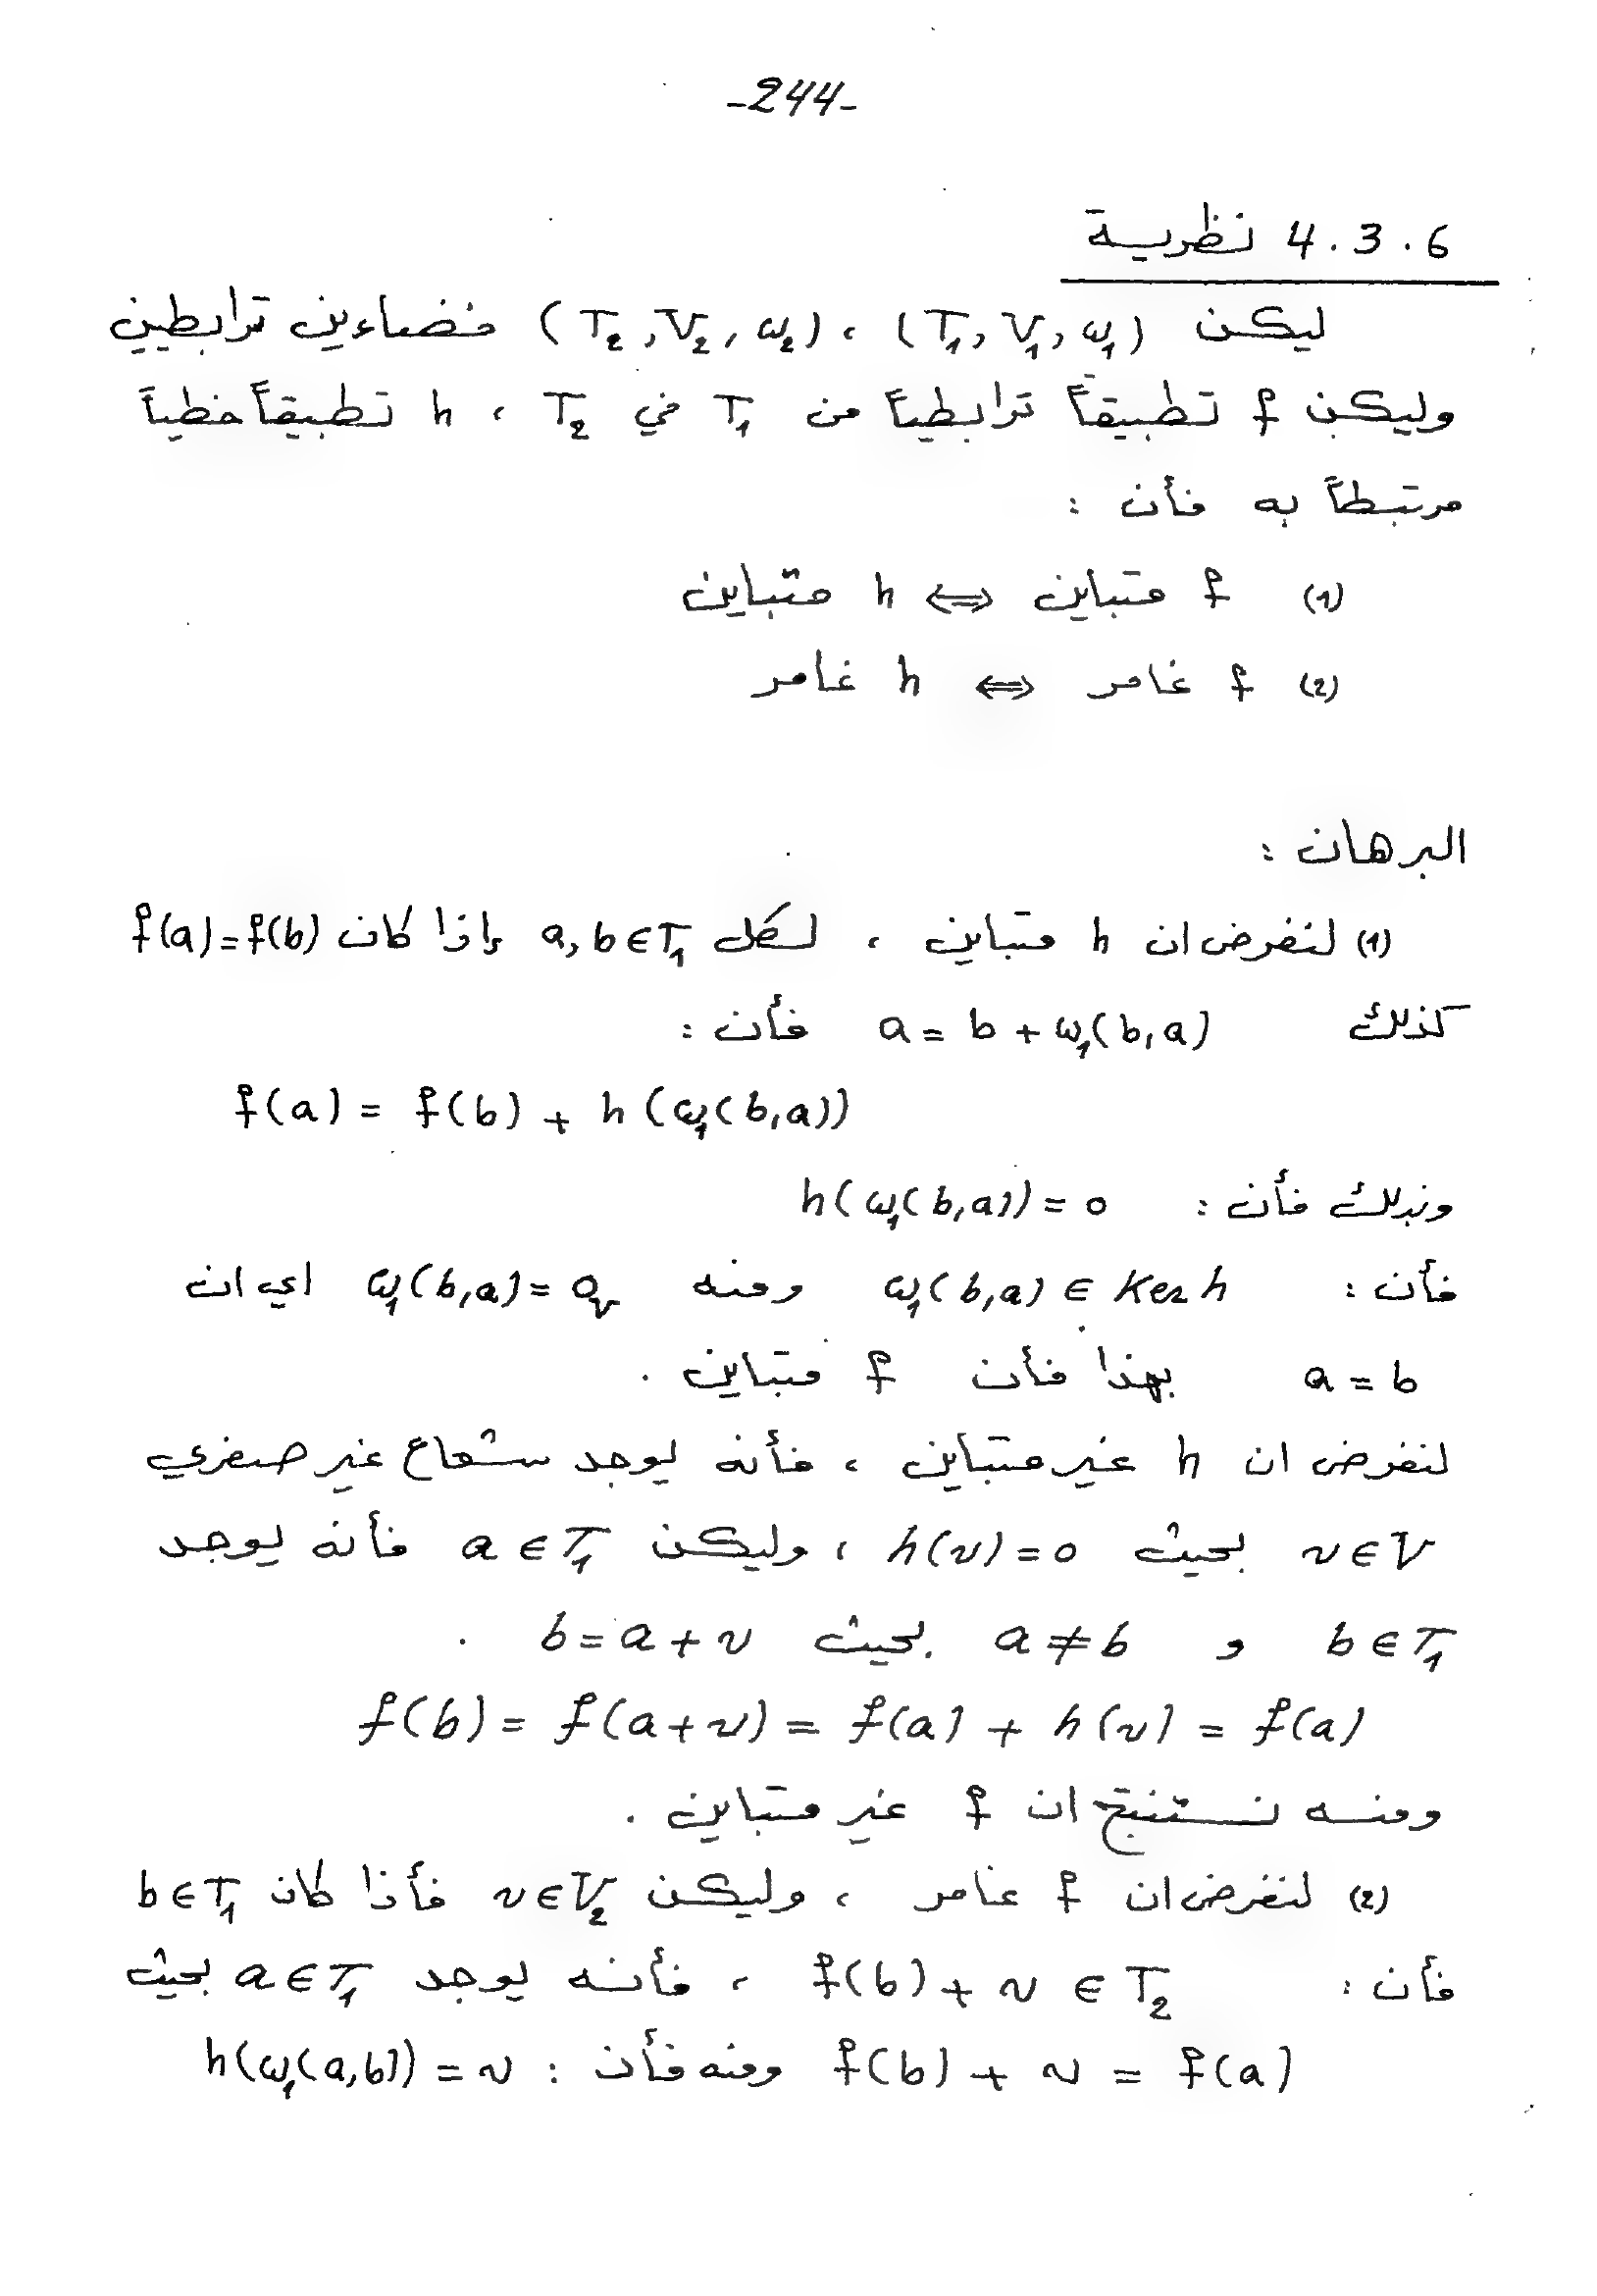 -244-
4.3.6 نظرية
ليكن (T₁,V₁,ω₁) ، (T₂,V₂,ω₂) فضاءين ترابطيين
وليكن f تطبيقاً ترابطياً من T₁ في T₂ ، h تطبيقاً خطياً
مرتبطاً به فأن :
(1) f متباين ⇔ h متباين
(2) f غامر ⇔ h غامر
البرهان :
(1) لنفرض ان h متباين ، لكل a,b∈T₁ إذا كان f(a)=f(b)
كذلك a = b + ω₁(b,a) فأن :
f(a) = f(b) + h(ω₁(b,a))
وبذلك فأن : h(ω₁(b,a)) = 0
فأن : ω₁(b,a) ∈ Ker h ومنه ω₁(b,a) = 0ᵥ اي ان
a = b بهذا فأن f متباين .
لنفرض ان h غير متباين ، فأنه يوجد شعاع غير صفري
v∈V بحيث h(v)=0 ، وليكن a∈T₁ فأنه يوجد
b∈T₁ و a≠b بحيث b=a+v .
f(b) = f(a+v) = f(a) + h(v) = f(a)
ومنه نستنتج ان f غير متباين .
(2) لنفرض ان f غامر ، وليكن v∈V₂ فأذا كان b∈T₁
فأن : f(b) + v ∈ T₂ ، فأنه يوجد a∈T₁ بحيث
f(b) + v = f(a) ومنه فأن : h(ω₁(a,b)) = v